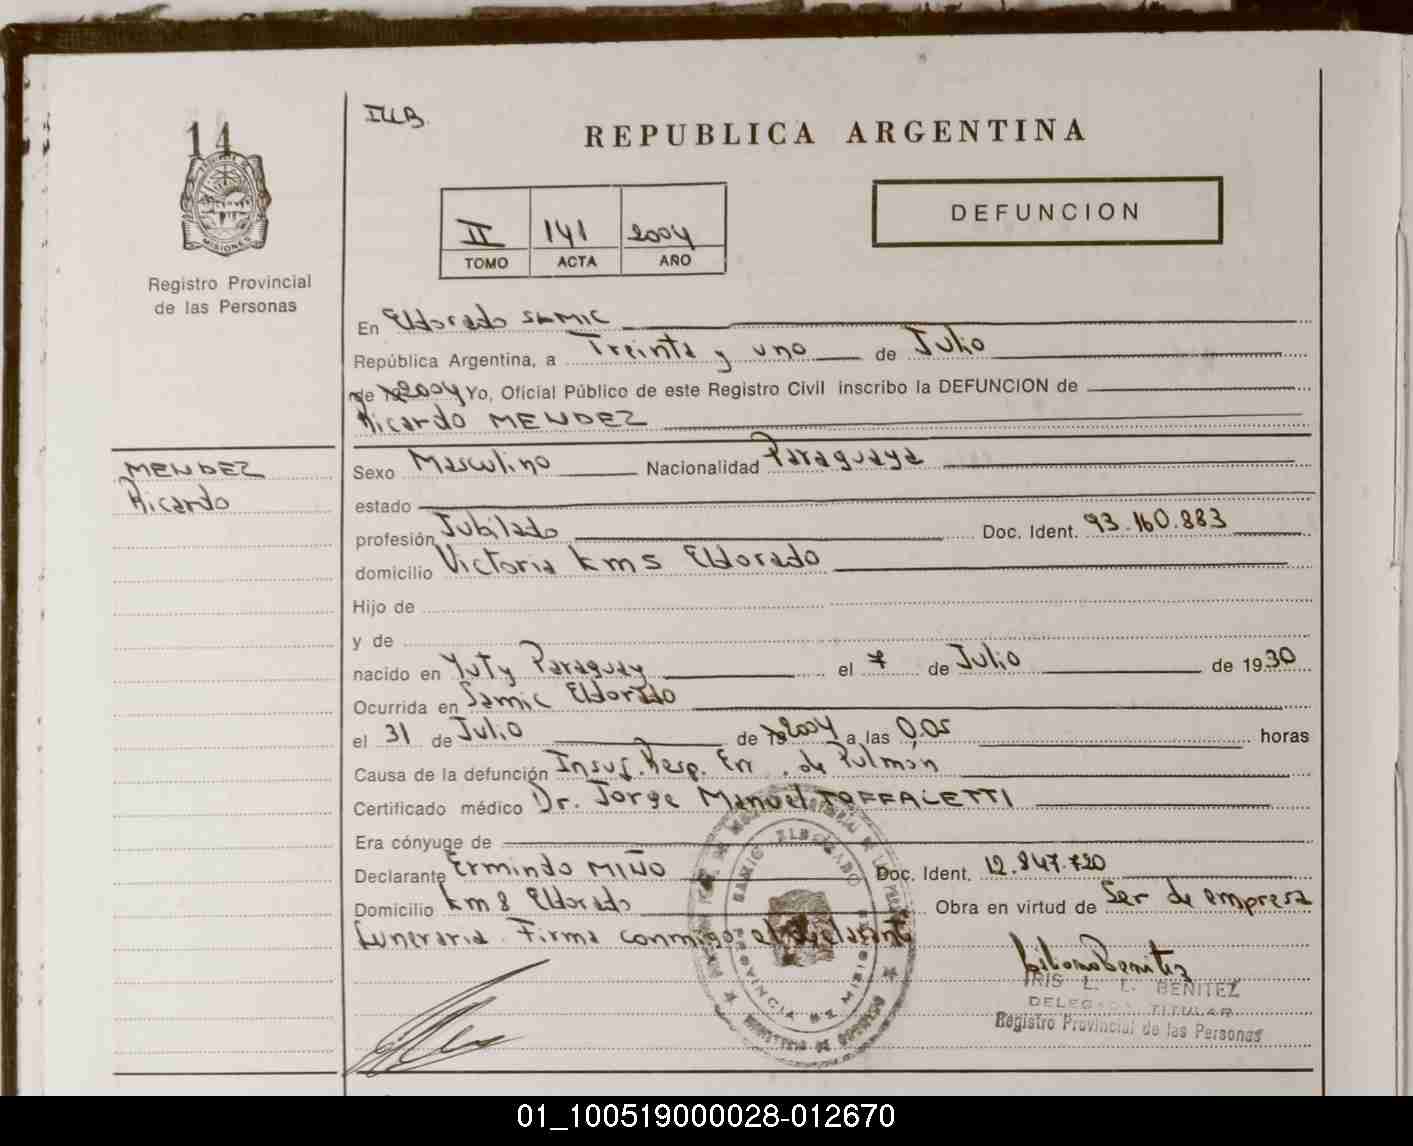 14
MISIONES
Registro Provincial
de las Personas
MENDEZ
Ricardo
REPUBLICA ARGENTINA
II 141 2004
TOMO ACTA AÑO
DEFUNCION
En Eldorado SAMIC
República Argentina, a Treinta y uno de Julio
de 2004 Yo, Oficial Público de este Registro Civil inscribo la DEFUNCION de
Ricardo MENDEZ
Sexo Masculino Nacionalidad Paraguaya
estado
profesión Jubilado Doc. Ident. 93.160.883
domicilio Victoria km 5 Eldorado
Hijo de
y de
nacido en Yuty Paraguay el 7 de Julio de 1930
Ocurrida en Samic Eldorado
el 31 de Julio de 2004 a las 0,05 horas
Causa de la defunción Insuf. Resp. de Pulmón
Certificado médico Dr. Jorge Manuel TOFFALETTI
Era cónyuge de
Declarante Ermindo MIÑO Doc. Ident. 12.847.720
Domicilio km 8 Eldorado Obra en virtud de Ser de empresa
funeraria. Firma conmigo el declarante
SAMIC ELDORADO
PROVINCIA DE MISIONES
MINISTERIO DE GOBIERNO
Liliana Benitez
IRIS L. L. BENITEZ
DELEGADA TITULAR
Registro Provincial de las Personas
01_100519000028-012670